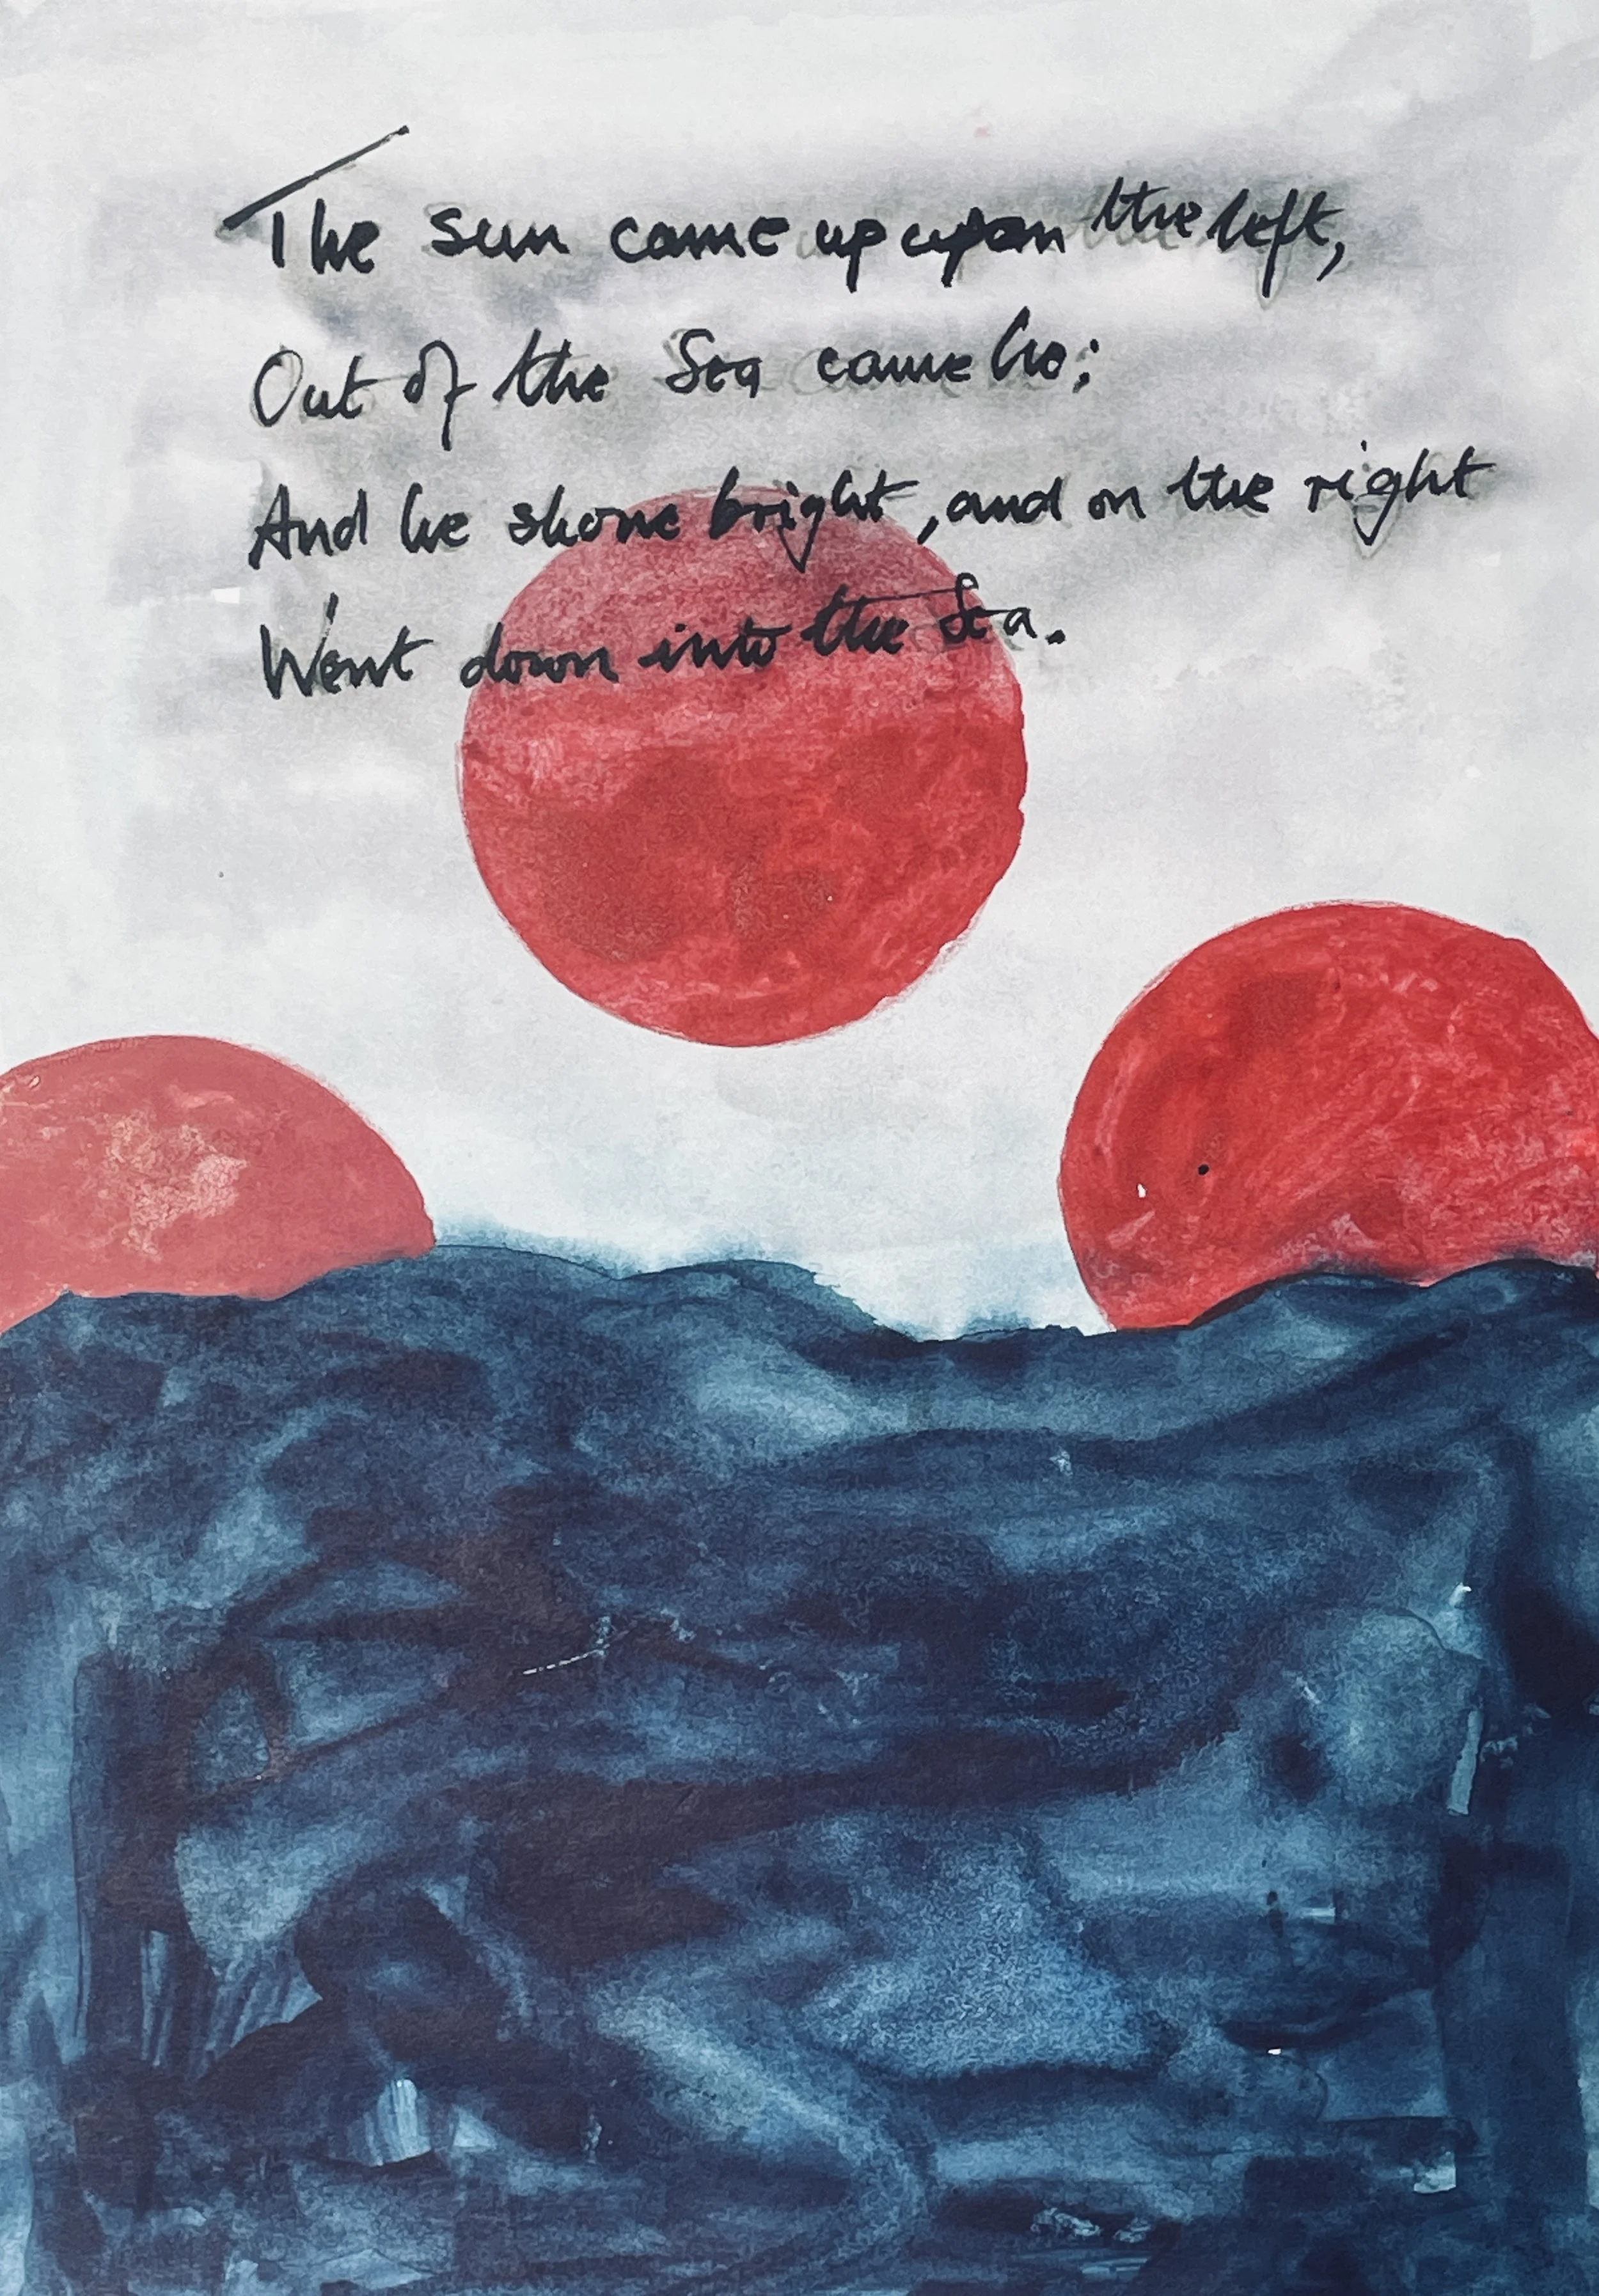 The sun came up upon the left,
Out of the Sea came he;
And he shone bright, and on the right
Went down into the Sea.